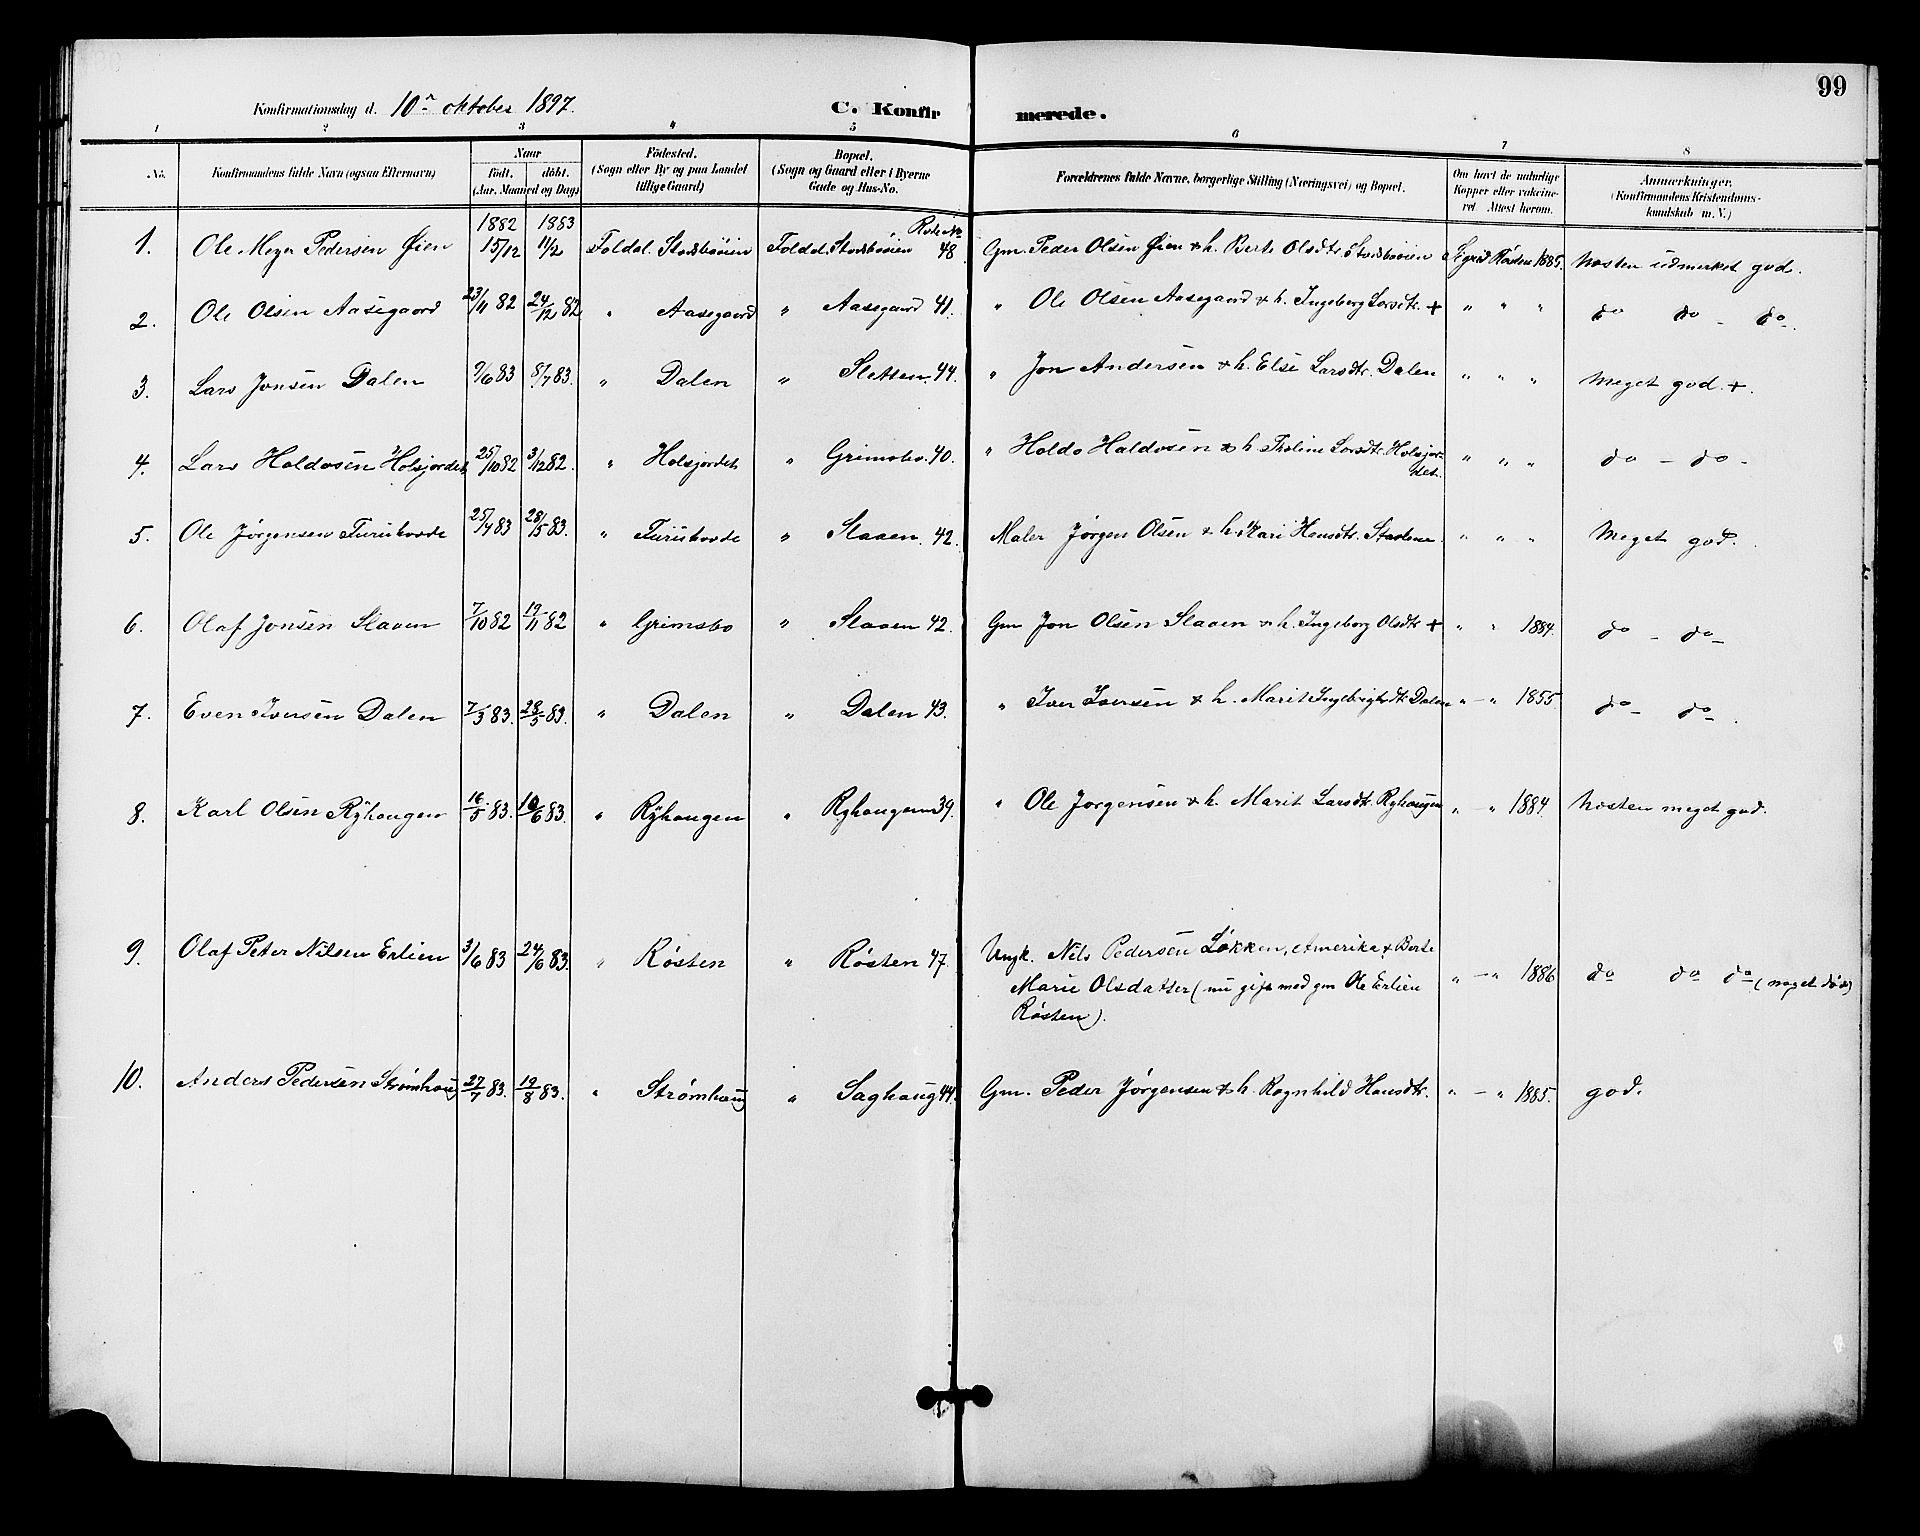 99
Konfirmationsdag d. 10de oktober 1897.
C. Konfirmerede.
1 2 3 4 5 6 7 8
No. Konfirmandens fulde Navn (ogsaa Efternavn) Naar födt. döbt. (Aar, Maaned og Dag) Födested. (Sogn eller By og paa Landet tillige Gaard) Bopæl. (Sogn og Gaard eller i Byerne Gade og Hus-No. Forældrenes fulde Navne, borgerlige Stilling (Næringsvei) og Bopæl. Om havt de naturlige Kopper eller vakcineret. Attest herom. Anmærkninger. (Konfirmandens Kristendomskundskab m. V.)
1882 1883 Rode No
1. Ole Meyer Pedersen Øien 15/12 11/2 Foldal. Stadsbøien Foldal. Stadsbøien 48. Gm. Peder Olsen Øien & h. Berte Olsdtr. Stadsbøien Sigrid Røsten 1885. Næsten udmerket god.
2. Ole Olsen Aasegaard 23/11 82 24/12 82 " Aasegaard " Aasegaard 41. " Ole Olsen Aasegaard & h. Ingeborg Larsdtr. + " " " do do - do.
3. Lars Jonsen Dalen 9/6 83 8/7 83. " Dalen " Sletten 44. " Jon Andersen & h. Elsi Larsdtr. Dalen " " " Meget god. +.
4. Lars Haldosen Holsjordet 25/10 82 3/12 82. " Holsjordet " Grimsbo. 40. " Holdo Haldosen & h. Larsdtr. Holsjordet. " " " do - do -
5. Ole Jørgensen Furuhovde 25/4 83 28/5 83. " Furuhovde " Slaaen. 42. Maler Jørgen Olsen & h. Kari Hansdtr. " " " Meget god.
6. Olaf Jonsen Slaaen 7/10 82 19/11 82 " Grimsbo " Slaaen 42. Gm Jon Olsen Slaaen & h. Ingeborg Olsdtr + " " 1884. do - do -
7. Even Iversen Dalen 7/3 83. 28/5 83. " Dalen " Dalen 43. " Iver Iversen & h. Marit Ingebrigtsdtr. Dalen " - " 1855 do - do -.
8. Karl Olsen Ryhaugen 16/5 83. 10/6 83. " Ryhaugen " Ryhaugen 39. " Ole Jørgensen & h. Marit Larsdtr. Ryhaugen " - " 1884. Næsten meget god.
9. Olaf Peter Nilsen Erlien 3/6 83 24/6 83. " Røsten " Røsten 47. Ungk. Nils Pedersen Løkken, Amerika & Berte
Marie Olsdatter (nu gift med gm Ole Erlien " - " 1886 do do do - (noget døv)
Røsten).
10. Anders Pedersen Strømhaug 27/7 83. 19/8 83. " Strømhaug " Saghaug 44. Gm. Peder Jørgensen & h. Ragnhild Hansdtr. " - " 1885. god.